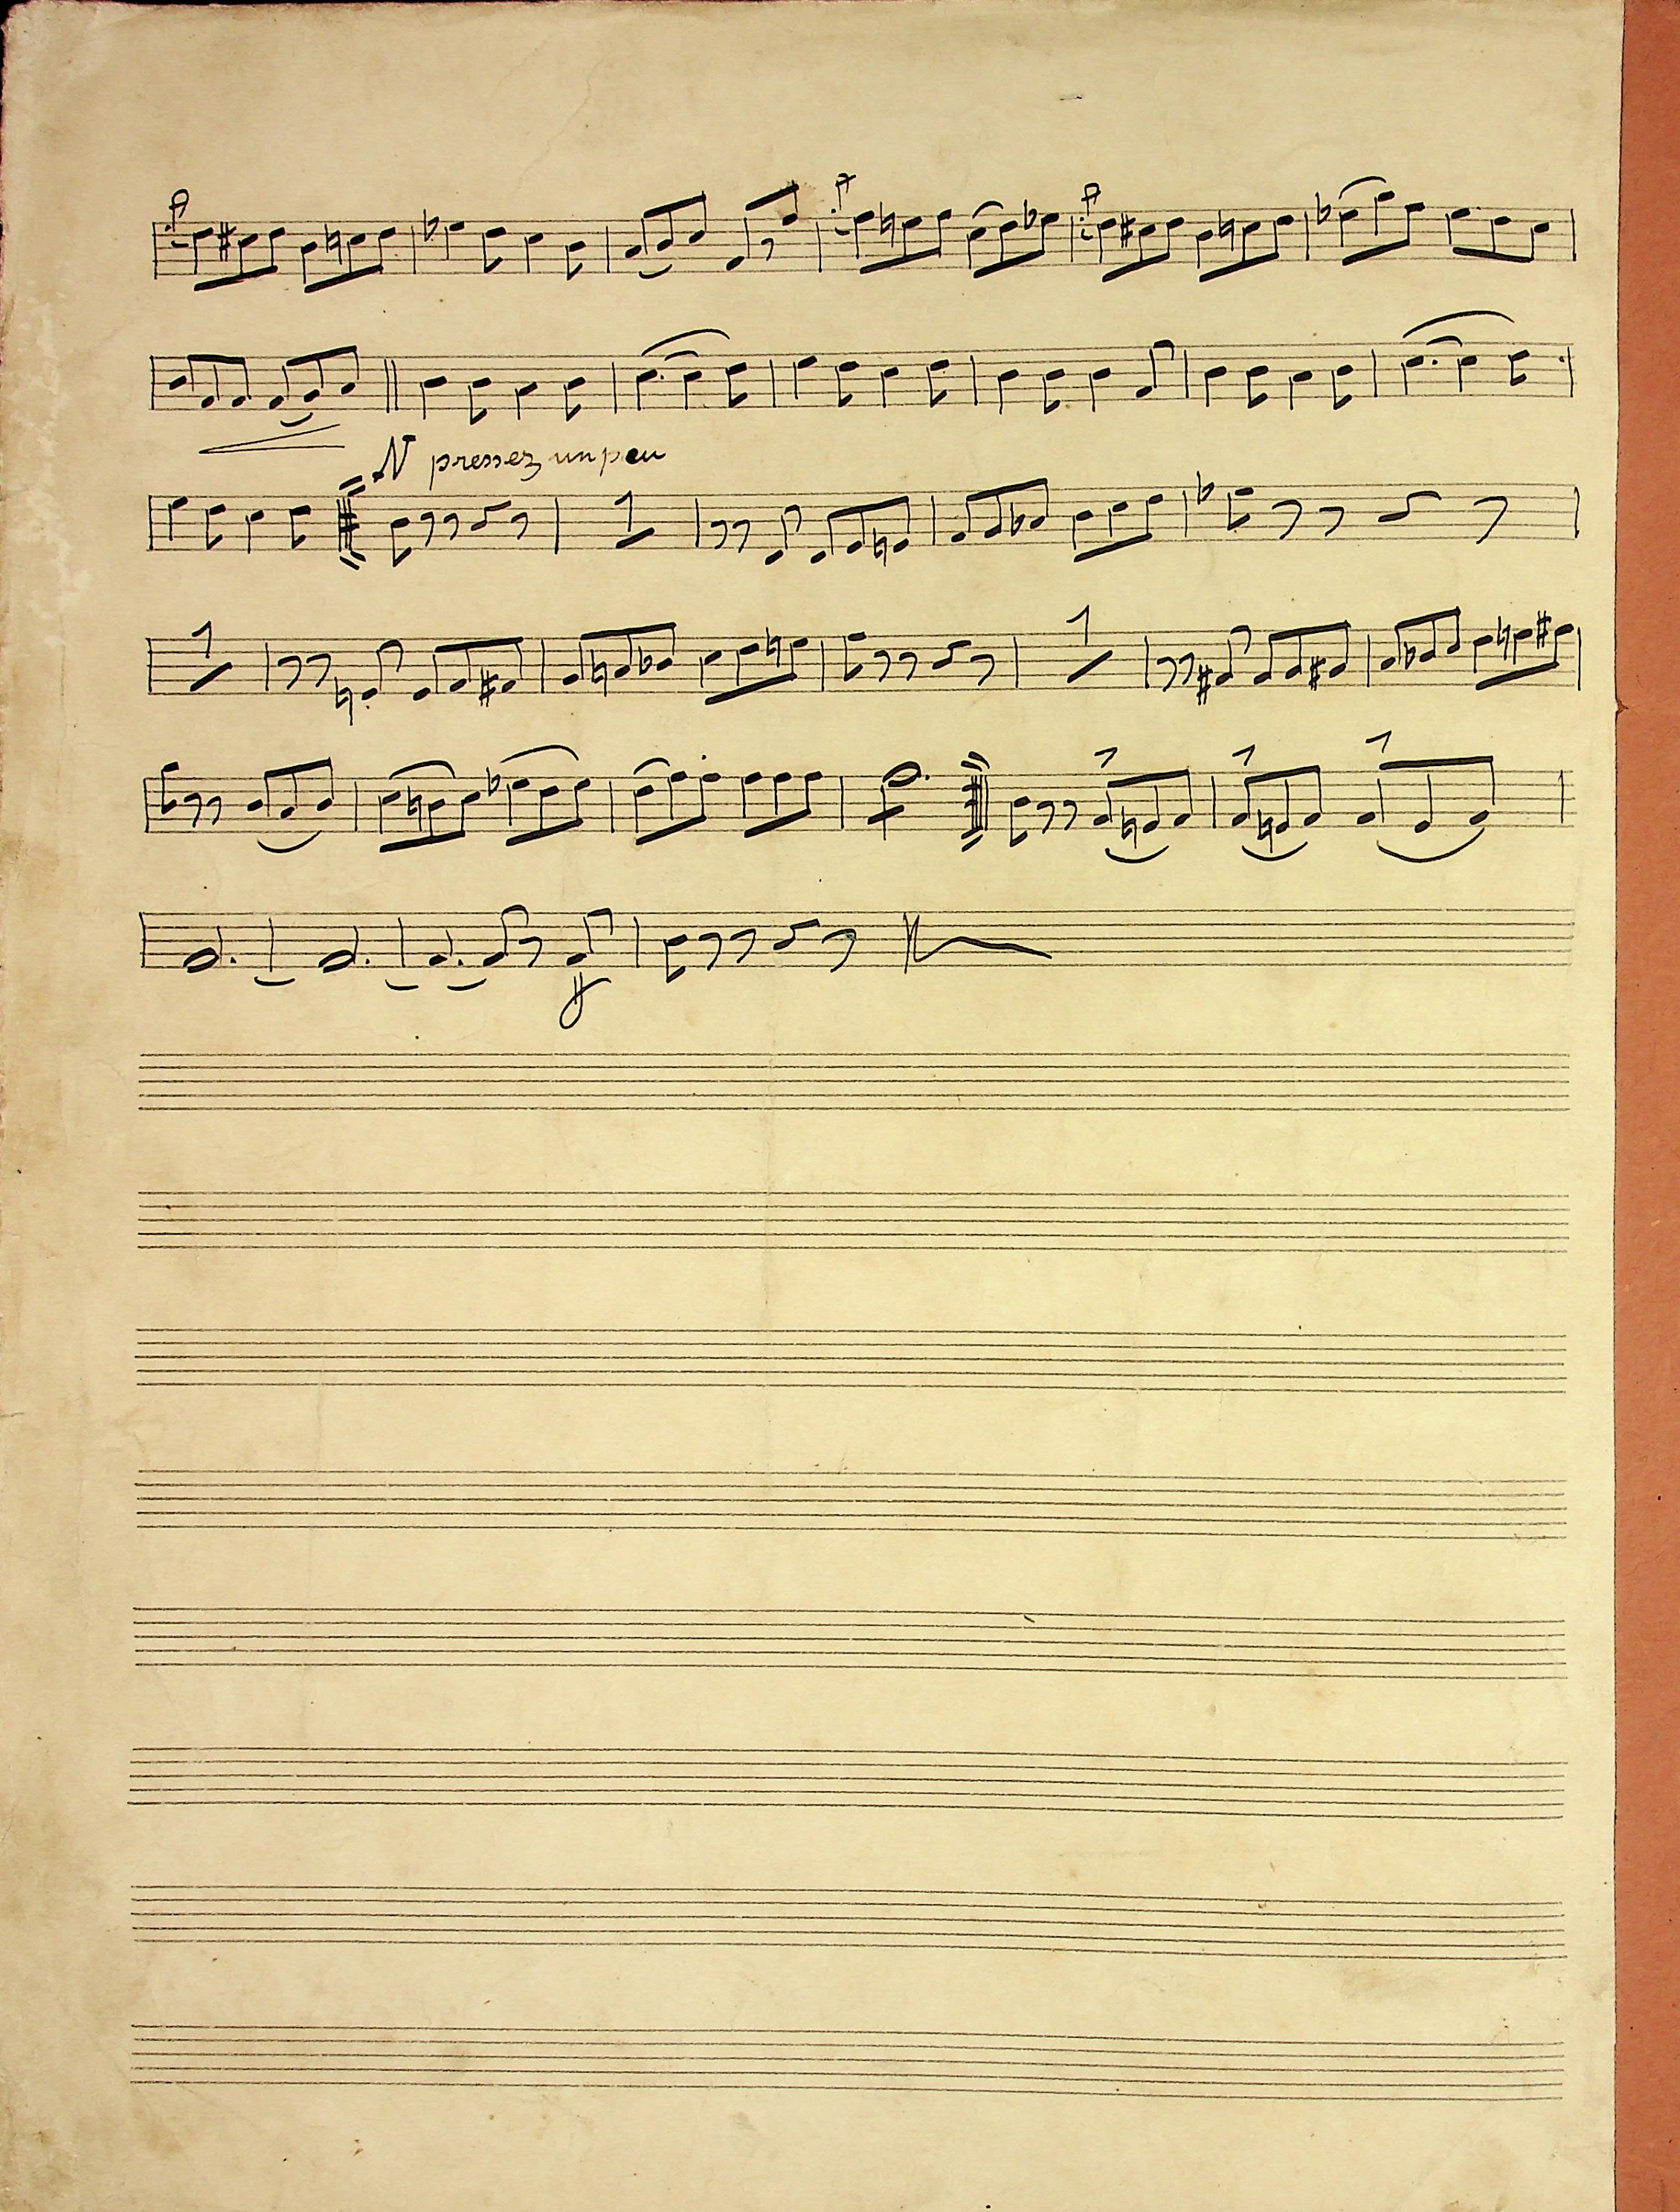 N pressez un peu
1
1
1